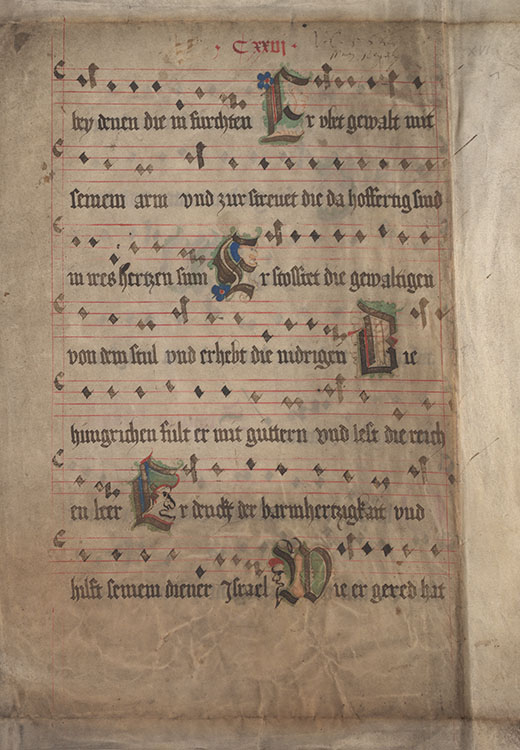 · C xxiij ·
bey denen die in furchten Er vbet gewalt mit
seinem arm vnd zur strewet die da hoffertig sind
in ires hertzen sinn Er stosset die gewaltigen
von dem stul vnd erhebt die nidrigen Die
hungrichen fult er mit guttern vnd lest die reich
en leer Er denckt der barmhertzigkait vnd
hilft seinem diener Israel Wie er gered hat